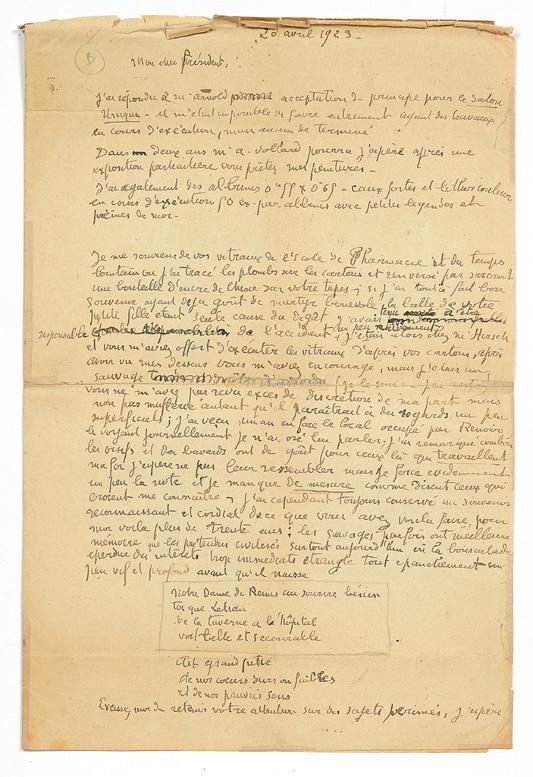 20 avril 1923 -
B
Mon cher Président,
J'ai répondu à M. Arnold acceptation de principe pour le Salon
Unique - il m'était impossible de faire autrement ayant des travaux
en cours d'exécution, mais aucun de terminé
Dans deux ans Mr A. Vollard pourra j'espère après une
exposition particulière vous prêter mes peintures -
J'ai également des albums 0m55 x 0m65 - eaux fortes et lithos couleur
en cours d'exécution 50 ex. par albums avec petites légendes et
poèmes de moi -
Je me souviens de vos vitraux de l'école de Pharmacie et du temps
lointain où j'ai tracé les plombs sur les cartons et renversé par
une bouteille d'encre de Chine sur votre tapis; si j'ai tout à fait bon
souvenir ayant déjà goût de martyr bénévole, la balle de votre
petite fille étant seule cause du dégât j'avais
responsable de l'accident, j'étais alors chez Mr Hirsch
et vous m'aviez offert d'exécuter les vitraux d'après vos cartons, après
avoir vu mes dessins vous m'aviez encouragé, mais j'étais un
sauvage (je le suis un peu
vous ne m'avez pas revu excès de discrétion de ma part mais
non pas muflerie autant qu'il paraîtrait à des regards un peu
superficiels; j'ai vécu un an en face le local occupé par Renoir
le voyant journellement je n'ai osé lui parler; j'ai remarqué combien
les oisifs et les bavards ont de goût pour ceux là qui travaillent
ma foi j'espère ne pas leur ressembler mais je force évidemment
un peu la note et je manque de mesure comme disent ceux qui
croient me connaître; j'ai cependant toujours conservé un souvenir
reconnaissant et cordial de ce que vous avez voulu faire, pour
moi voilà plus de trente ans; les sauvages parfois ont meilleure
mémoire que les prétendus civilisés surtout aujourd'hui où la bousculade
éperdue des intérêts trop immédiats étrangle tout épanchement un
peu vif et profond avant qu'il naisse
Notre Dame de Reims au sourire bénin
tu que Lélian
de la taverne à l'hôpital
voit belle et secourable
ait grand pitié
de nos coeurs durs ou faibles
et de nos pauvres sens
Excusez moi de retenir votre attention sur des sujets périmés, j'espère